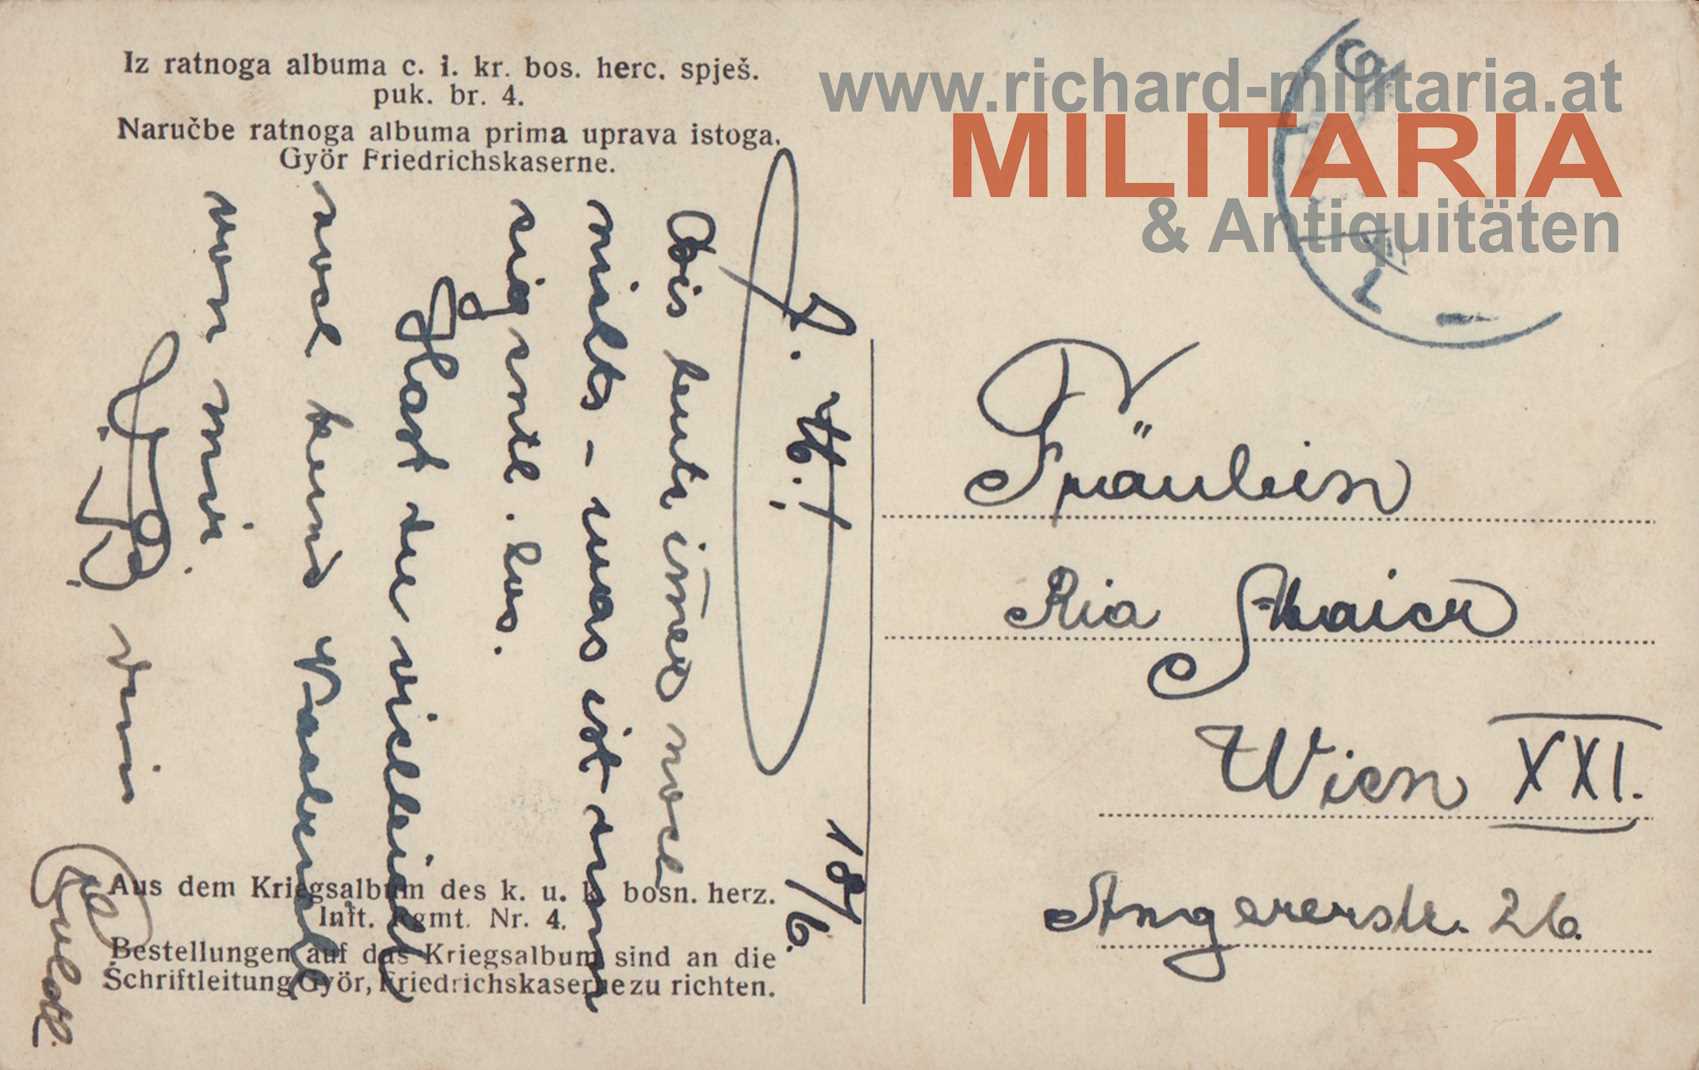 Iz ratnoga albuma c. i. kr. bos. herc. spješ.
puk. br. 4.
Naručbe ratnoga albuma prima uprava istoga.
Györ Friedrichskaserne.
www.richard-militaria.at
MILITARIA
& Antiquitäten
18/6.
Bis heute immer noch
nichts - was ist denn
eigentl. los.
Hast du vielleicht
von mir
Fräulein
Ria Maier
Wien XXI.
Angererstr. 26.
Aus dem Kriegsalbum des k. u. k. bosn. herz.
Inft. Rgmt. Nr. 4.
Bestellungen auf das Kriegsalbum sind an die
Schriftleitung Györ, Friedrichskaserne zu richten.